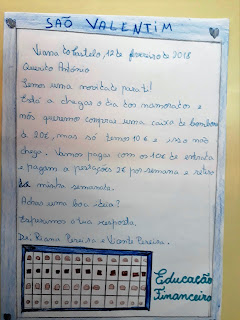 SAÕ VALENTIM
Viana do Castelo, 12 de fevereiro de 2018
Querido António
Temos uma novidade para ti!
Está a chegar o dia dos namorados e
nós queremos comprar uma caixa de bombons
de 20€, mas só temos 10€ e isso não
chega. Vamos pagar com os 10€ de entrada
e pagam a prestações 2€ por semana e retiro
da minha semanada.
Achas uma boa ideia?
Esperamos a tua resposta.
De, Riana Pereira e Vicente Pereira.
Educação
Financeira